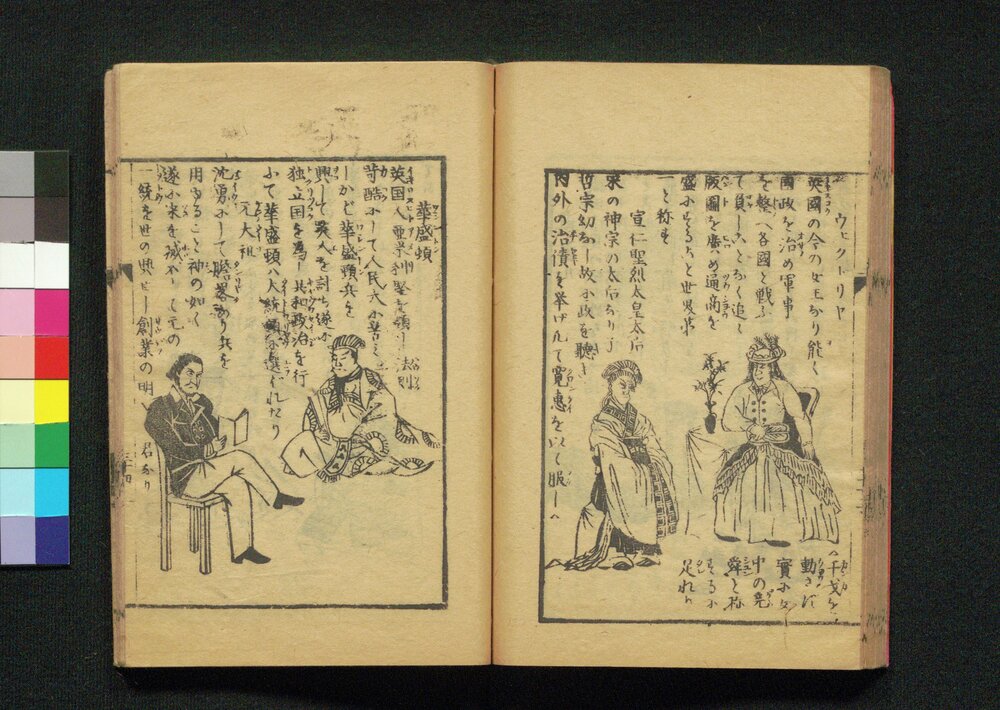 ウヒクトーリヤ
英國の今の女王なり能く
國政を治め軍事
を整へ各國と戦ふ
て負しことなく追々
版圖を廣め通商を
盛にすること世界第
一と称す
宣仁聖烈太皇太后
宋の神宗の太后なり
哲宗幼なし故に政を聽し
内外の治債を挙げ凡て寛恵を以て服し
干戈を
動さず
實に女
中の堯
舜と称
するに
足れり
華盛頓
英国人亜米利
苛酷にして人民大に苦む
しかば華盛頓兵を
興して英人を討ち遂に
独立国を為し共和政治を行
ふて華盛頓八大統領に選れたり
元大祖
沈勇にして胆畧あり兵を
用ゆること神の如く
遂に宋を滅して元の
一統を世の興し創業の明
君なり
三十四